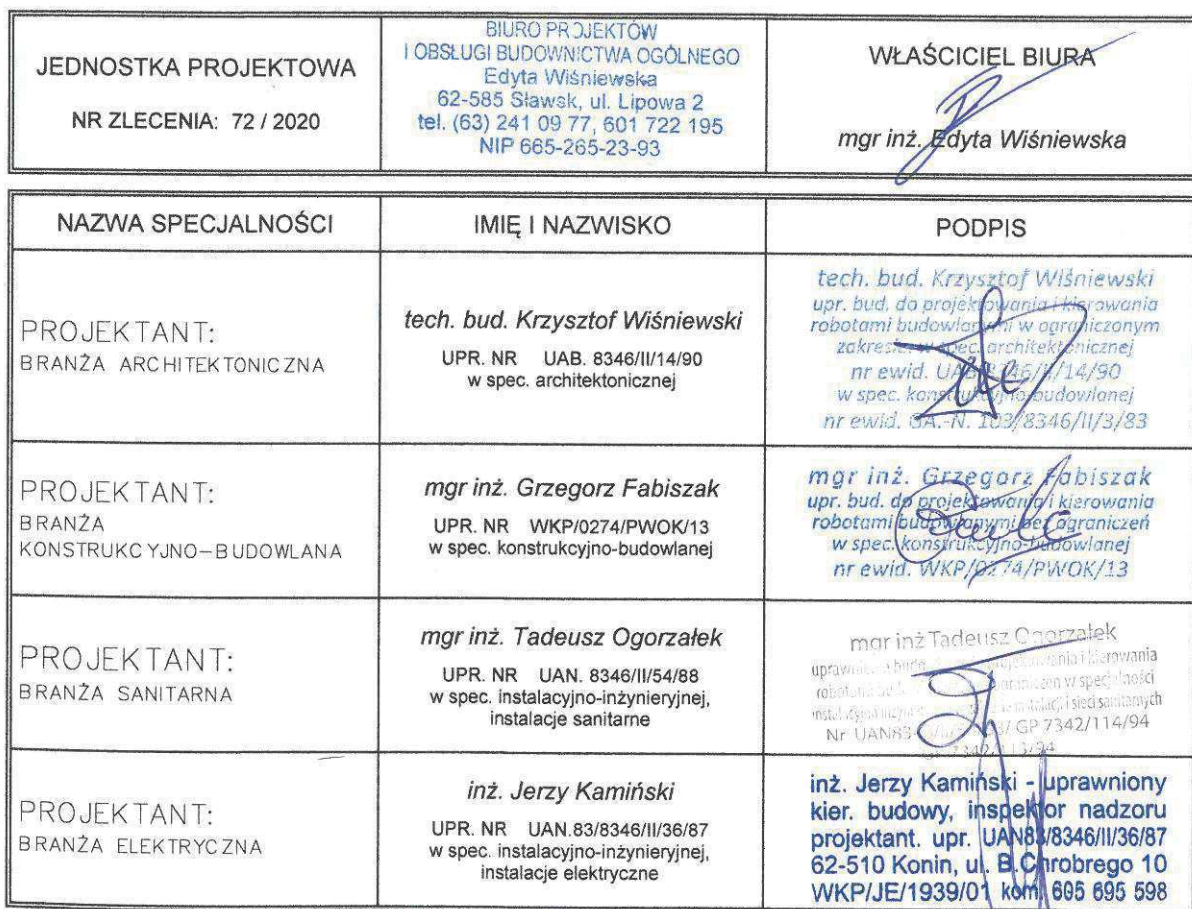 JEDNOSTKA PROJEKTOWA
NR ZLECENIA: 72 / 2020
BIURO PROJEKTÓW
I OBSŁUGI BUDOWNICTWA OGÓLNEGO
Edyta Wiśniewska
62-585 Sławsk, ul. Lipowa 2
tel. (63) 241 09 77, 601 722 195
NIP 665-265-23-93
WŁAŚCICIEL BIURA
mgr inż. Edyta Wiśniewska
NAZWA SPECJALNOŚCI
IMIĘ I NAZWISKO
PODPIS
PROJEKTANT:
BRANŻA ARCHITEKTONICZNA
tech. bud. Krzysztof Wiśniewski
UPR. NR UAB. 8346/II/14/90
w spec. architektonicznej
tech. bud. Krzysztof Wiśniewski
upr. bud. do projektowania i kierowania
robotami budowlanymi w ograniczonym
zakresie w spec. architektonicznej
nr ewid. UAB 8346/II/14/90
w spec. konstrukcyjno-budowlanej
nr ewid. GA.-N. 103/8346/II/3/83
PROJEKTANT:
BRANŻA
KONSTRUKCYJNO-BUDOWLANA
mgr inż. Grzegorz Fabiszak
UPR. NR WKP/0274/PWOK/13
w spec. konstrukcyjno-budowlanej
mgr inż. Grzegorz Fabiszak
upr. bud. do projektowania i kierowania
robotami budowlanymi bez ograniczeń
w spec. konstrukcyjno-budowlanej
nr ewid. WKP/0274/PWOK/13
PROJEKTANT:
BRANŻA SANITARNA
mgr inż. Tadeusz Ogorzałek
UPR. NR UAN. 8346/II/54/88
w spec. instalacyjno-inżynieryjnej,
instalacje sanitarne
mgr inż Tadeusz Ogorzałek
projektowania i kierowania
w specjalności
instalacji i sieci sanitarnych
GP 7342/114/94
PROJEKTANT:
BRANŻA ELEKTRYCZNA
inż. Jerzy Kamiński
UPR. NR UAN.83/8346/II/36/87
w spec. instalacyjno-inżynieryjnej,
instalacje elektryczne
inż. Jerzy Kamiński - uprawniony
kier. budowy, inspektor nadzoru
projektant. upr. UAN83/8346/II/36/87
62-510 Konin, ul. B.Chrobrego 10
WKP/JE/1939/01 kom. 605 695 598